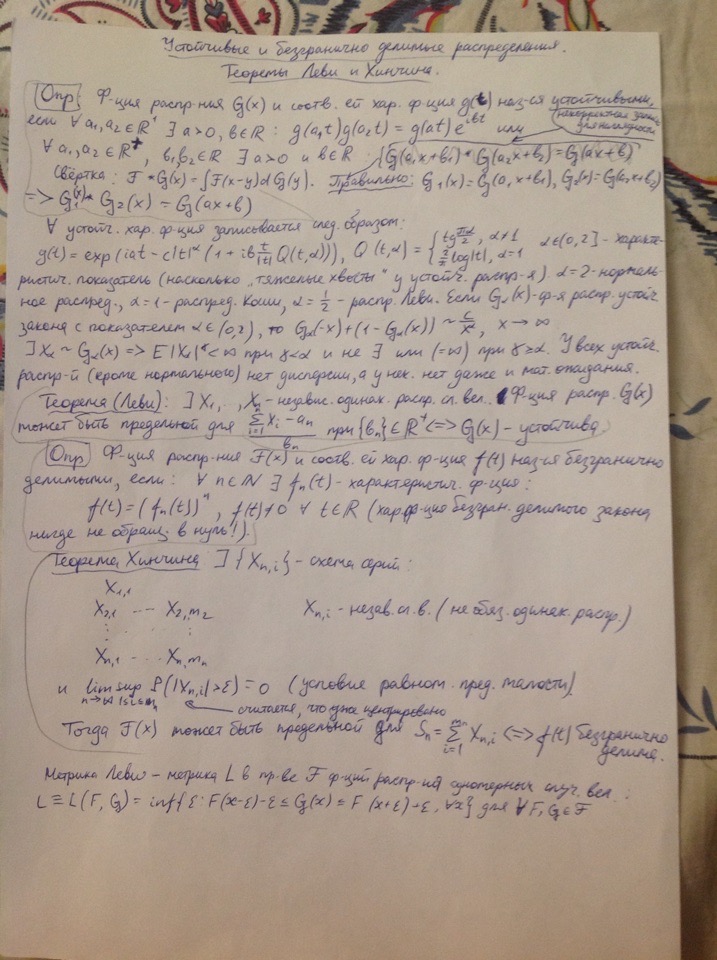 Устойчивые и безгранично делимые распределения.
Теоремы Леви и Хинчина.
Опр Ф-ция распр-ния G(x) и соотв. ей хар. ф-ция g(t) наз-ся устойчивыми,
если ∀ a₁, a₂ ∈ R⁺ ∃ a>0, b∈R : g(a₁t)g(a₂t) = g(at)e^{ibt} или
некорректная запись для наглядности
∀ a₁, a₂ ∈ R⁺, b₁, b₂ ∈ R ∃ a>0 и b∈R : G(a₁x+b₁) * G(a₂x+b₂) = G(ax+b)
Свёртка: F * G(x) = ∫F(x-y)dG(y). Правильно: G₁(x) = G(a₁x+b₁), G₂(x) = G(a₂x+b₂)
=> G₁(x) * G₂(x) = G(ax+b)
∀ устойч. хар. ф-ция записывается след. образом:
g(t) = exp(iat - c|t|^α (1 + ib t/|t| Q(t,α))), Q(t,α) = { tg πα/2, α≠1; 2/π log|t|, α=1 α∈(0,2] - характе-
ристич. показатель (насколько "тяжелые хвосты" у устойч. распр-я). α=2 - нормаль-
ное распред., α=1 - распред. Коши, α=1/2 - распр. Леви. Если G_α(x) - ф-я распр. устойч.
закона с показателем α∈(0,2), то G_α(-x) + (1-G_α(x)) ~ c/x^α, x→∞
∃ X_α ~ G_α(x) => E|X_α|^γ < ∞ при γ<α и не ∃ или (=∞) при γ≥α. У всех устойч.
распр-й (кроме нормального) нет дисперсии, а у нек. нет даже и мат. ожидания.
Теорема (Леви): ∃ X₁, ..., Xₙ - независ. одинак. распр. сл. вел. Ф-ция распр. G(x)
может быть предельной для (Σ_{i=1}^{n} X_i - a_n)/b_n при {b_n}∈R⁺ <=> G(x) - устойчива
Опр Ф-ция распр-ния F(x) и соотв. ей хар. ф-ция f(t) наз-ся безгранично
делимыми, если: ∀ n∈N ∃ fₙ(t) - характеристич. ф-ция:
f(t) = (fₙ(t))ⁿ, f(t)≠0 ∀ t∈R (хар. ф-ция безгран. делимого закона
нигде не обращ. в нуль!).
Теорема Хинчина ∃ {X_{n,i}} - схема серий:
X_{1,1}
X_{2,1} --- X_{2,m₂} X_{n,i} - незав. сл. в. (не обяз. одинак. распр.)
⋮ ⋮
X_{n,1} --- X_{n,mₙ}
и lim sup_{n→∞ 1≤i≤mₙ} P(|X_{n,i}|>ε) = 0 (условие равном. пред. малости)
считается, что уже центрировано
Тогда F(x) может быть предельной для Sₙ = Σ_{i=1}^{mₙ} X_{n,i} <=> f(t) безгранично
делима.
Метрика Леви - метрика L в пр-ве F ф-ций распр-ния одномерных случ. вел.:
L ≡ L(F,G) = inf{ε: F(x-ε)-ε ≤ G(x) ≤ F(x+ε)+ε, ∀x} для ∀ F, G ∈ F